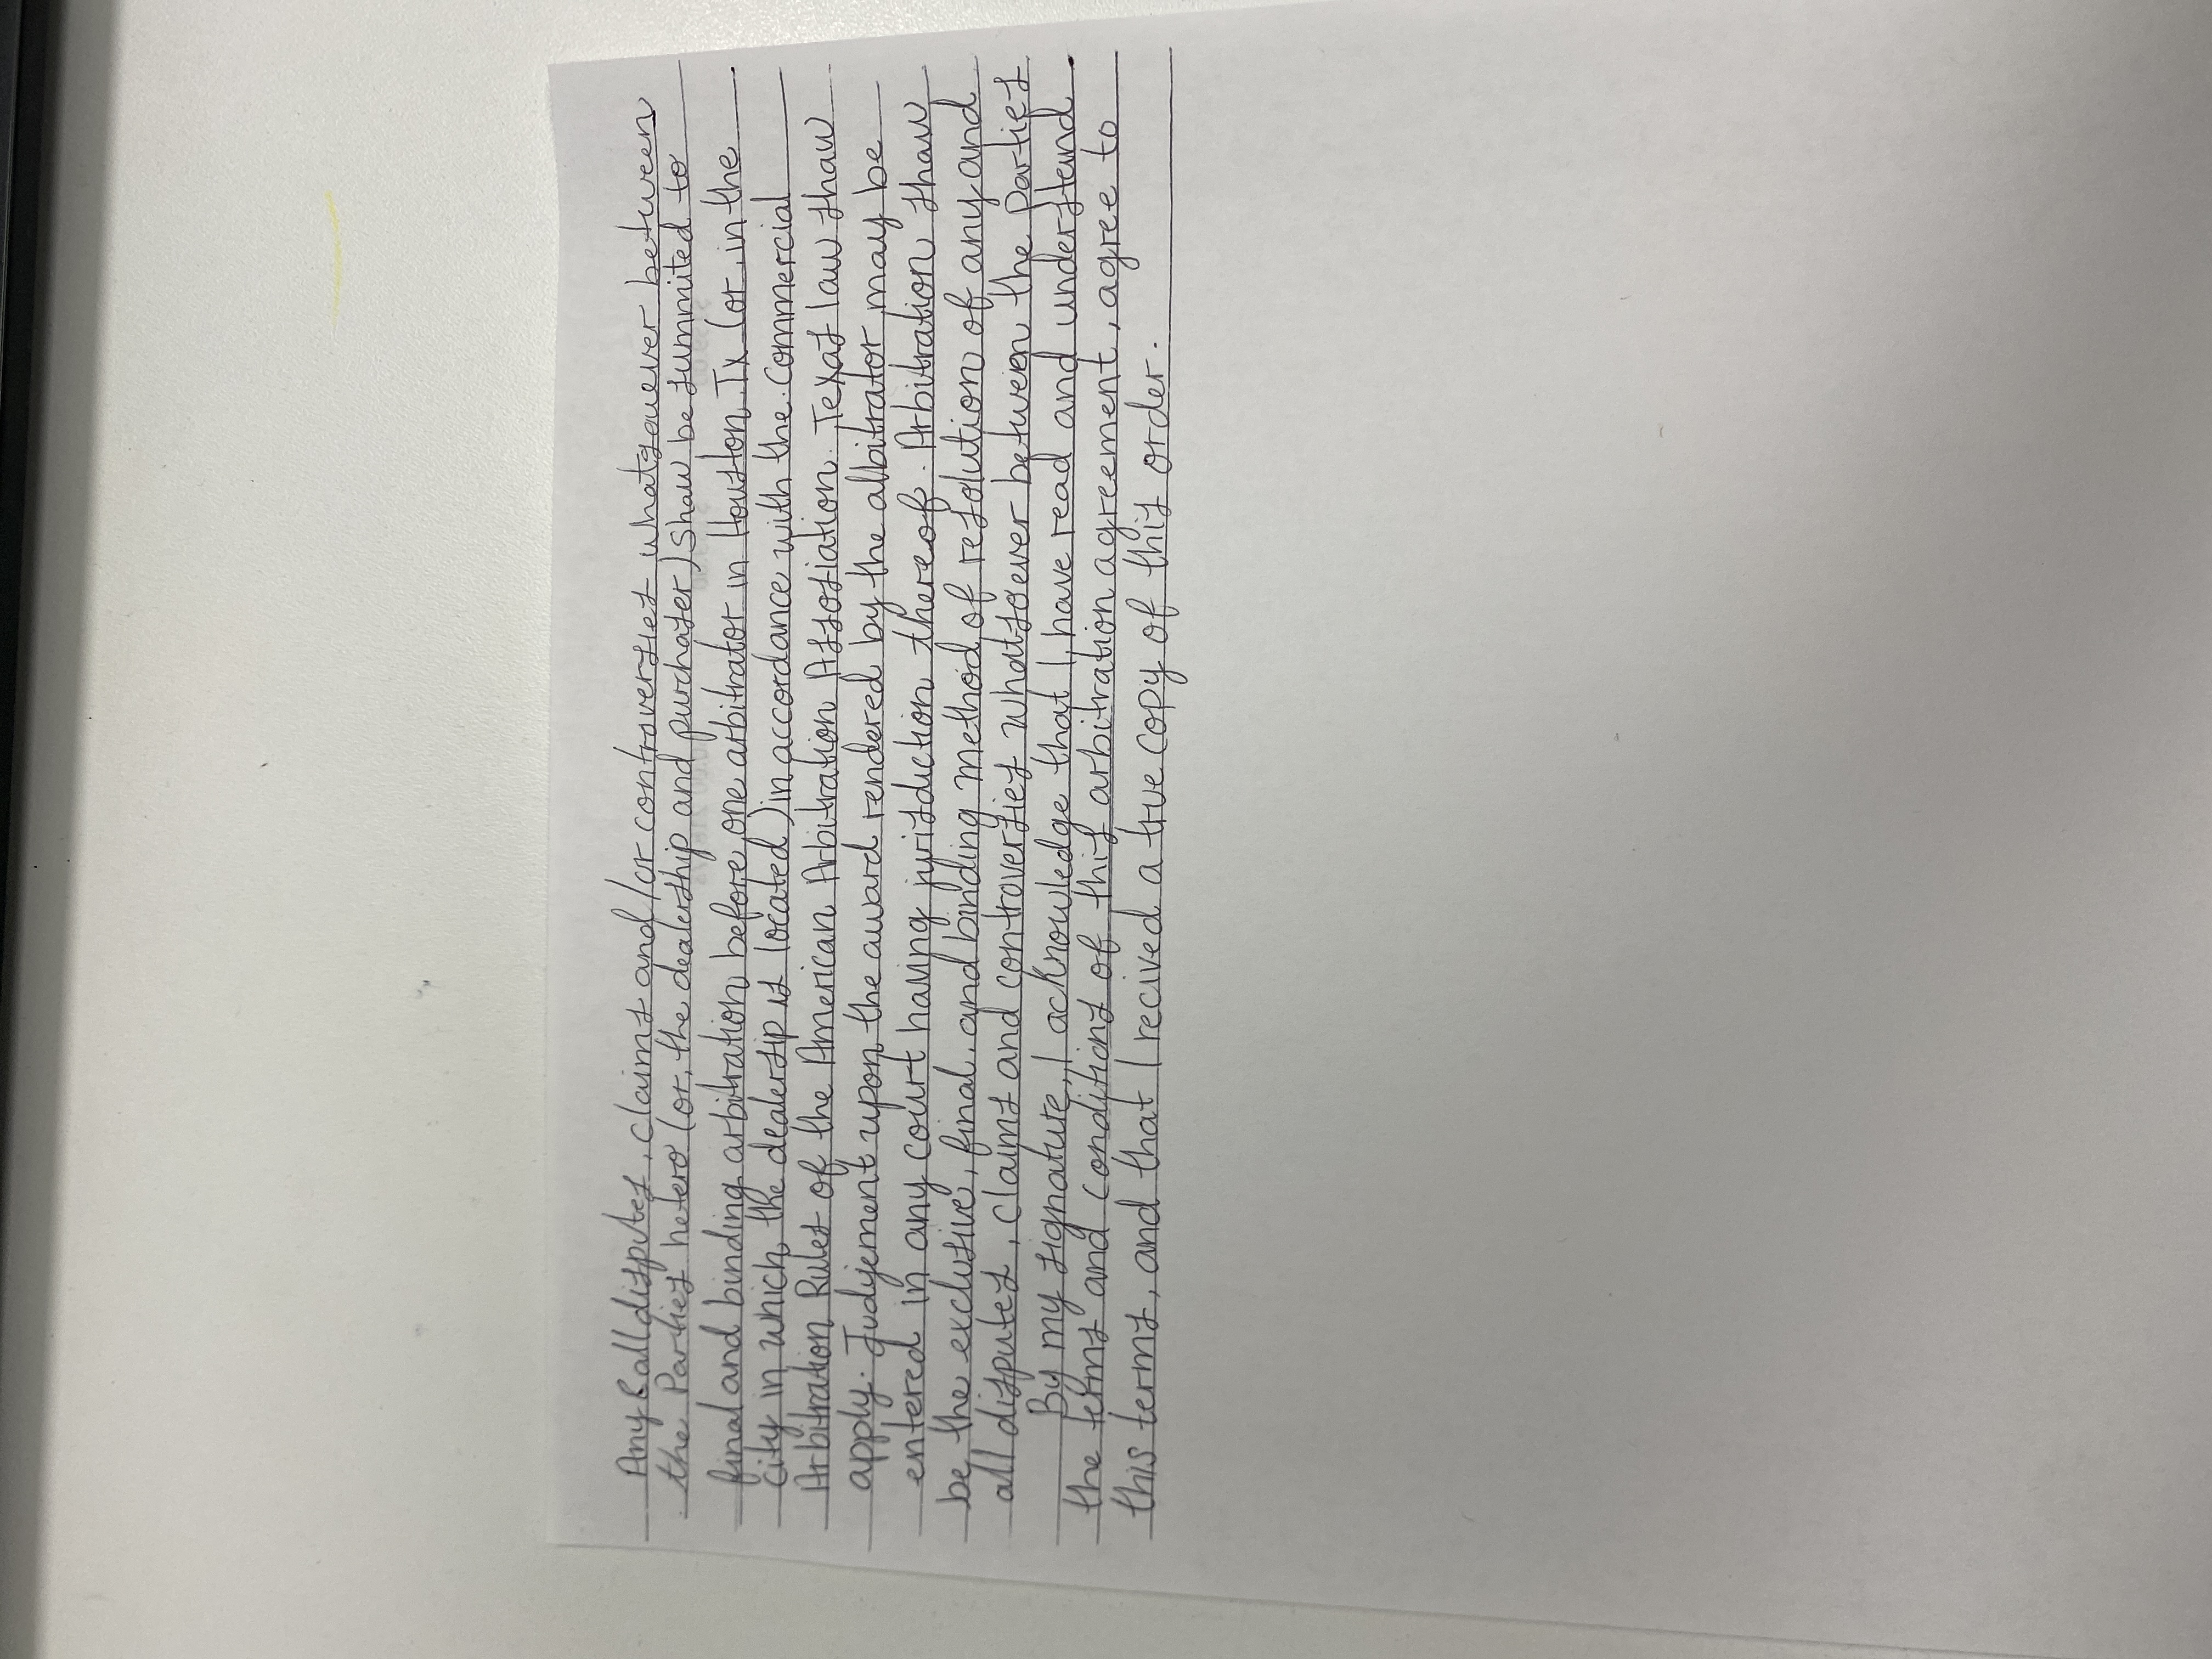 Any & all disputes, claims and/or controversies whatsouever between
the Parties hetero (or, the dealership and purchaser) Shaw be summited to
final and binding arbitration before one arbitrator in Houston, Tx (or in the
City in which the dealersip is located) in accordance with the Commercial
Arbitration Rules of the American Arbitration Assosiation. Texas law shaw
apply. Judjement upon the award rendered by the albitrator may be
entered in any court having jurisduction thereof. Arbitration shaw
be the exclusive, final, and binding method of resolution of any and
all disputes, claims and controversies whatsoever between the Parties
By my signature, I acknowledge that I have read and understand
the terms and conditions of this arbitration agreement, agree to
this terms, and that I recived a true copy of this order.